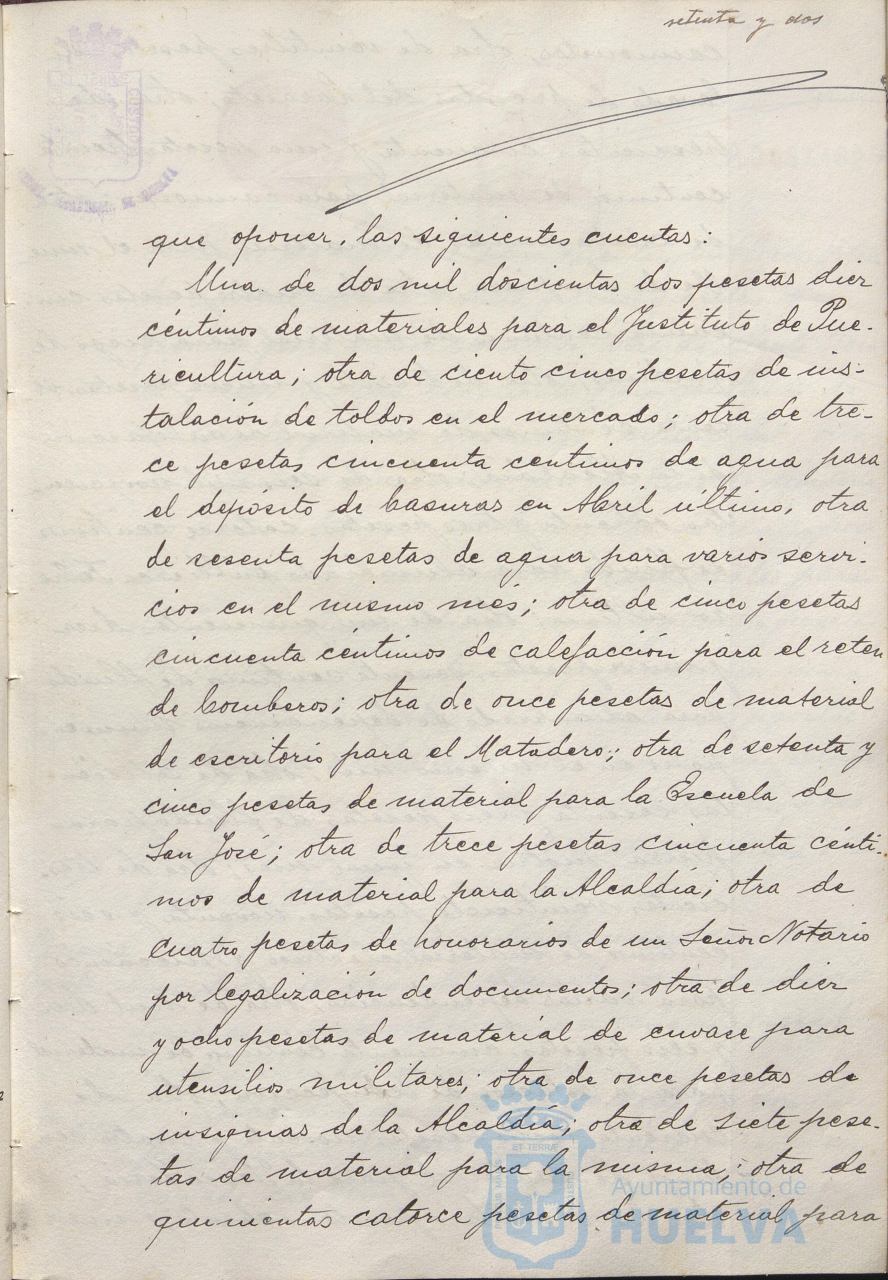 setenta y dos
que oponer, las siguientes cuentas:
Una de dos mil doscientas dos pesetas diez
céntimos de materiales para el Instituto de Pue-
ricultura; otra de ciento cinco pesetas de ins-
talación de toldos en el mercado; otra de tre-
ce pesetas cincuenta céntimos de agua para
el depósito de basuras en Abril último, otra
de sesenta pesetas de agua para varios servi-
cios en el mismo més; otra de cinco pesetas
cincuenta céntimos de calefacción para el reten
de bomberos; otra de once pesetas de material
de escritorio para el Matadero; otra de setenta y
cinco pesetas de material para la Escuela de
San José; otra de trece pesetas cincuenta cénti-
mos de material para la Alcaldía; otra de
cuatro pesetas de honorarios de un Señor Notario
por legalización de documentos; otra de diez
y ocho pesetas de material de envase para
utensilios militares; otra de once pesetas de
insignias de la Alcaldía; otra de siete pese-
tas de material para la misma; otra de
quinientas catorce pesetas de material para
ET TERRÆ
Ayuntamiento de
HUELVA